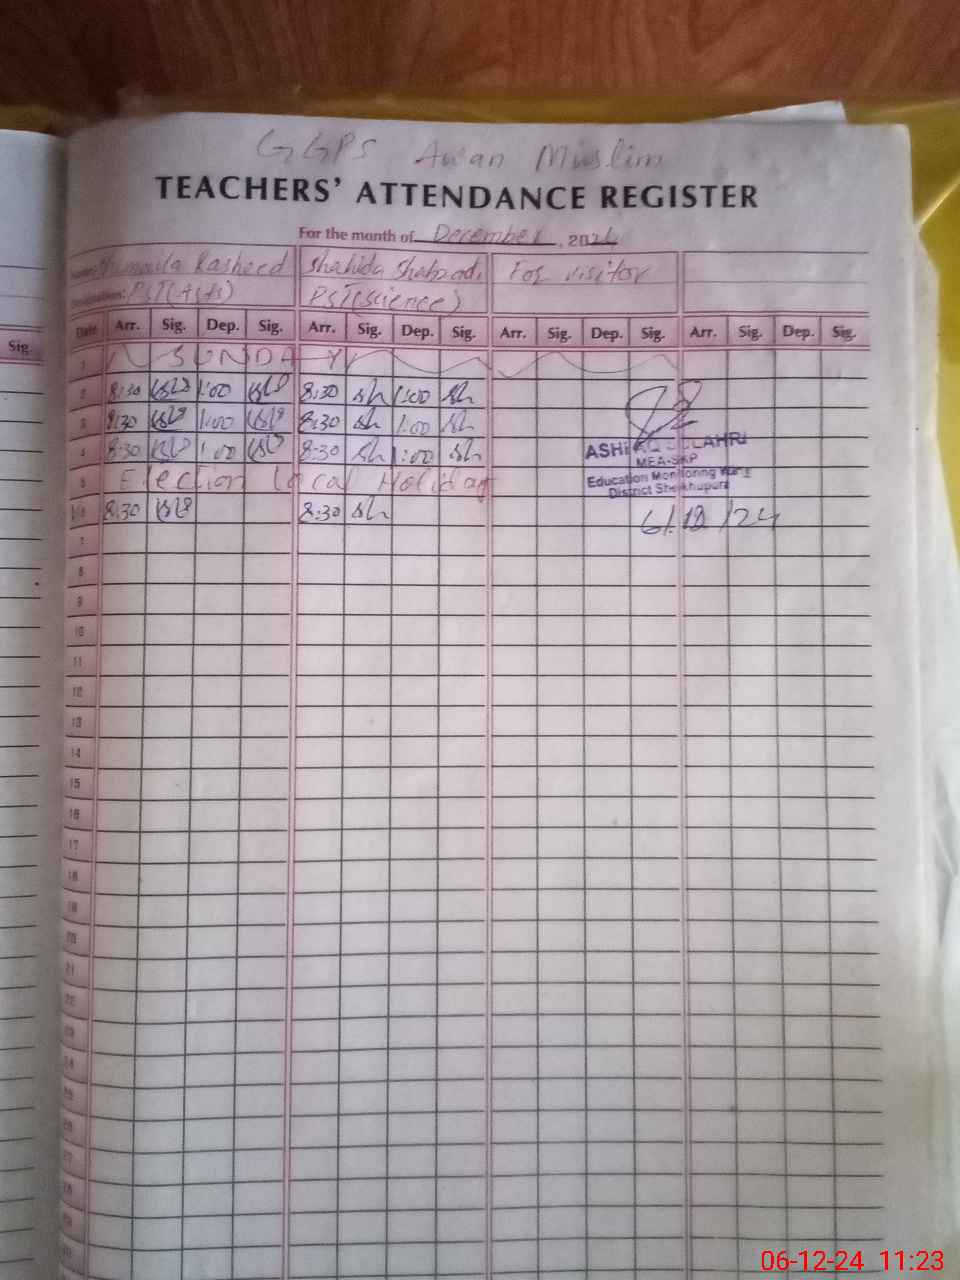 GGPS Awan Muslim
TEACHERS' ATTENDANCE REGISTER
For the month of December, 2024
Name: Rasheed Shahida Shahzadi For visitor
Designation: PST(Arts) PST(science)
Sig.
Date Arr. Sig. Dep. Sig. Arr. Sig. Dep. Sig. Arr. Sig. Dep. Sig. Arr. Sig. Dep. Sig.
1 SUNDAY
2 8:30 1:00 8:30 sh 1:00 sh
3 8:30 1:00 8:30 sh 1:00 sh
4 8:30 1:00 8:30 sh 1:00 sh
ASHFAQ DULLAHRI
MEA-SKP
5 Election Local Holiday
Education Monitoring
District Sheikhupura
6 8:30 8:30 sh
6/12/24
7
8
9
10
11
12
13
14
15
16
17
18
19
20
21
22
23
24
25
26
27
28
29
30
06-12-24 11:23